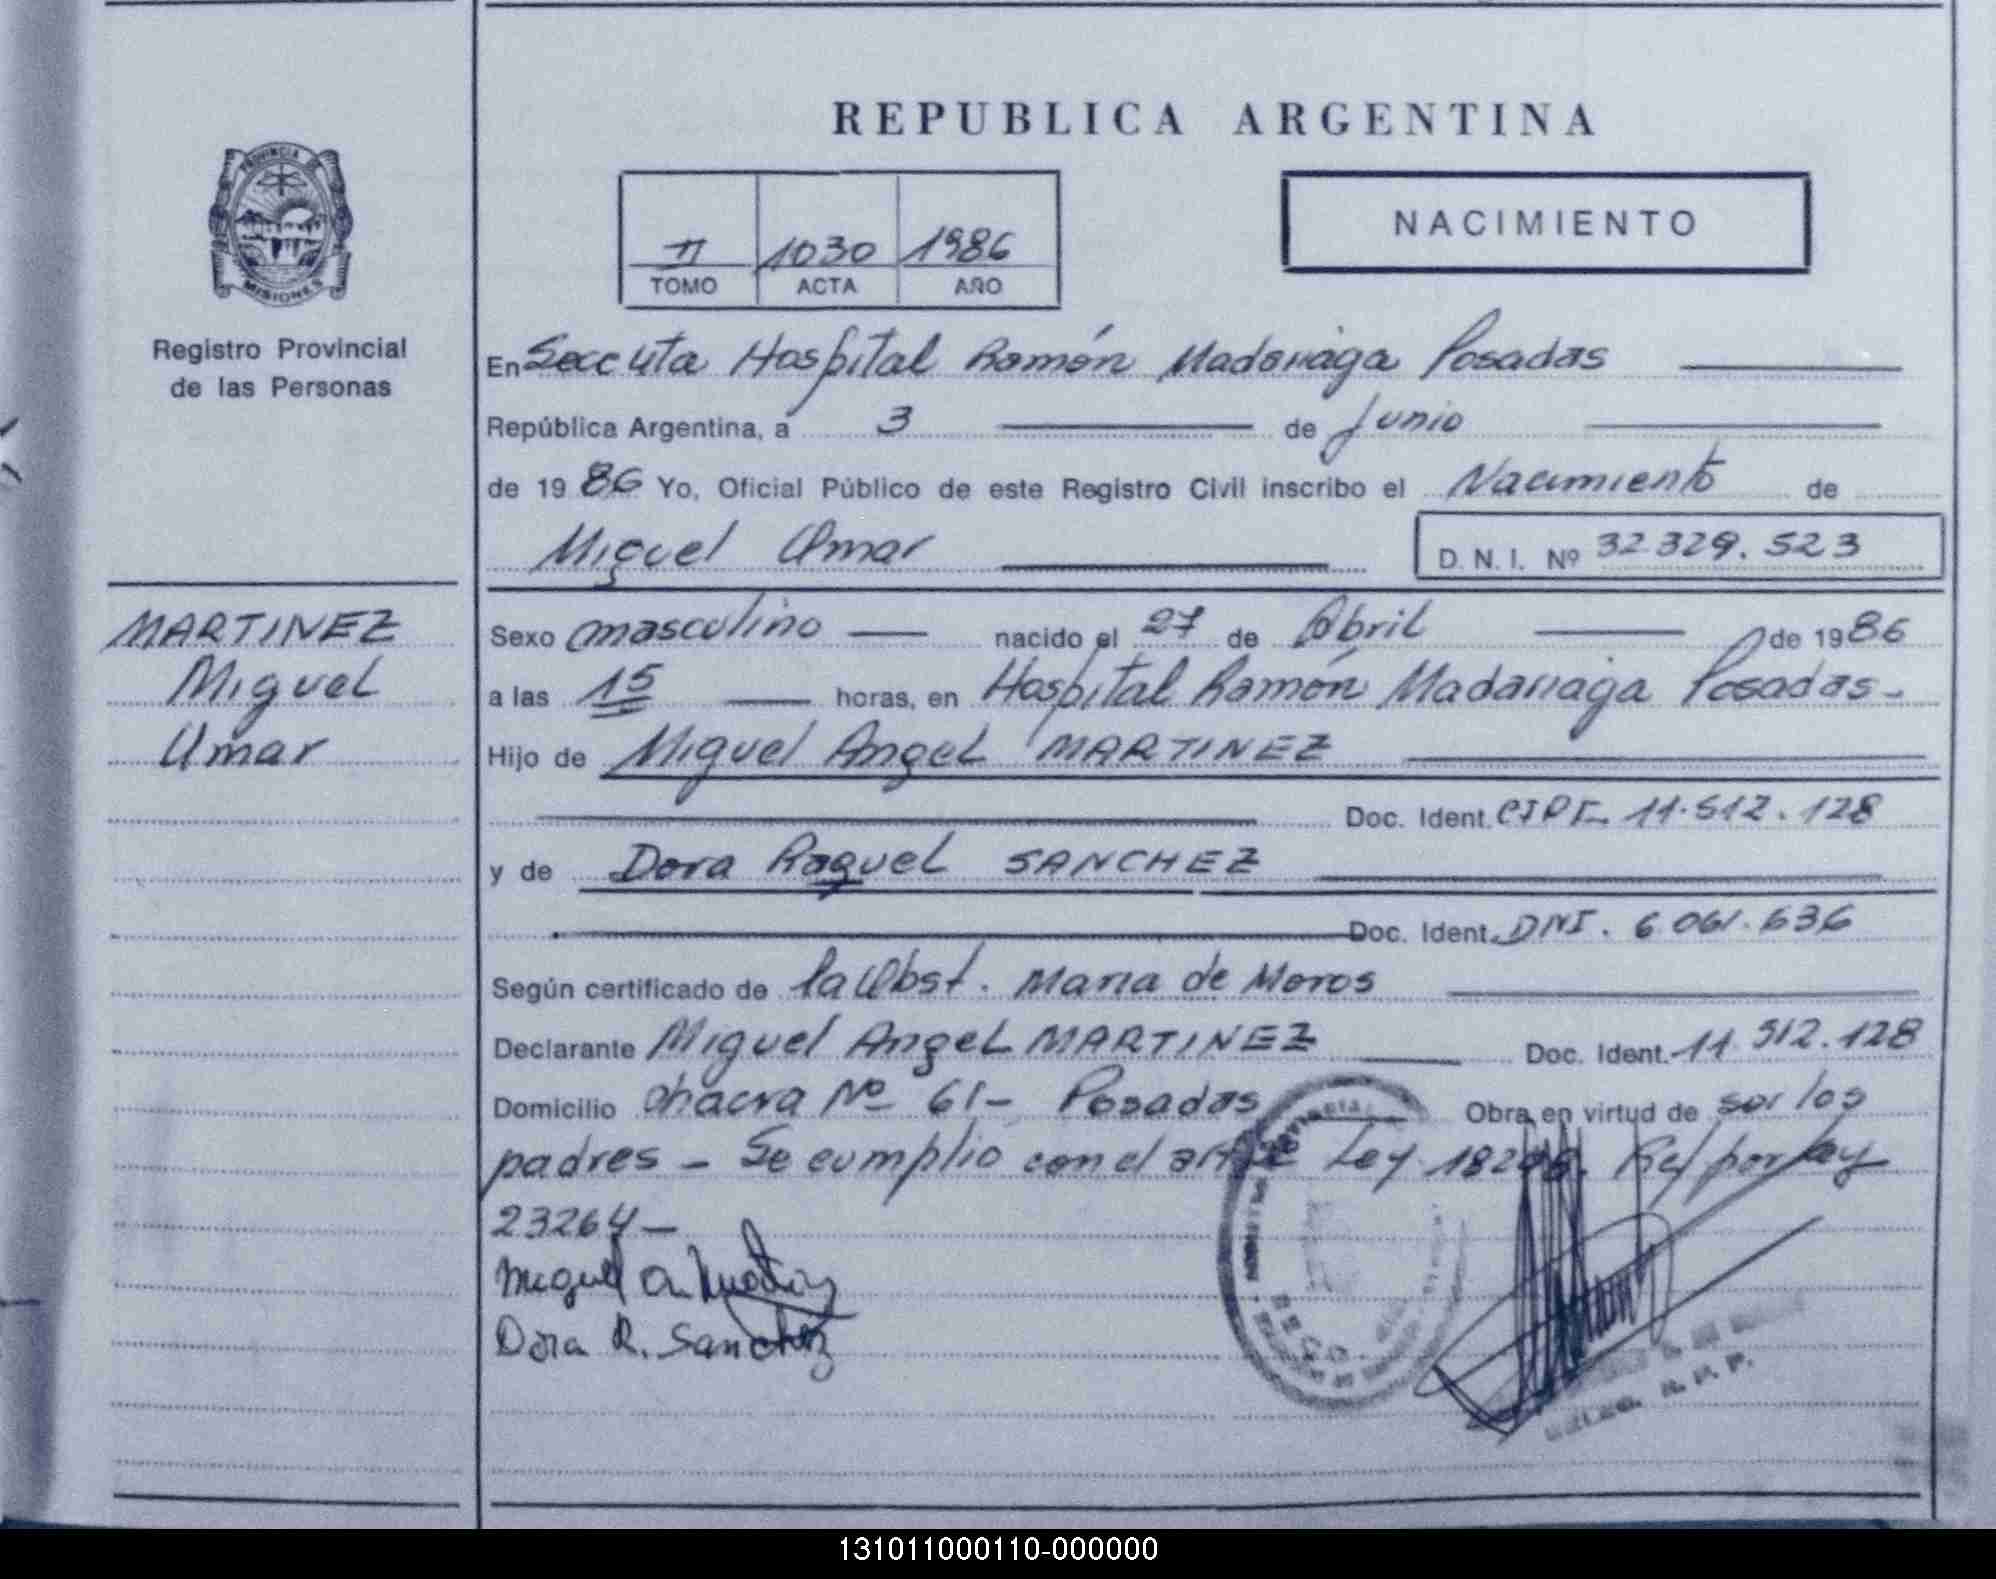 REPUBLICA ARGENTINA
PROVINCIA DE
MISIONES
Registro Provincial
de las Personas
II 1030 1986
TOMO ACTA AÑO
NACIMIENTO
En Hospital Ramón Madariaga Posadas
República Argentina, a 3 de Junio
de 1986 Yo, Oficial Público de este Registro Civil inscribo el Nacimiento de
Miguel Omar D. N. I. Nº 32.329.523
MARTINEZ
Miguel
Omar
Sexo masculino nacido el 27 de Abril de 1986
a las 15 horas, en Hospital Ramón Madariaga Posadas-
Hijo de Miguel Angel MARTINEZ
Doc. Ident. 11.512.128
y de Dora Raquel SANCHEZ
Doc. Ident. DNI. 6.061.636
Según certificado de la Obst. Maria de Moros
Declarante Miguel Angel MARTINEZ Doc. Ident. 11.512.128
Domicilio chacra Nº 61- Posadas Obra en virtud de ser los
padres - Se cumplio con el art Ley por Ley
23264-
Miguel A. Martinez
Dora R. Sanchez
R. P. P.
131011000110-000000